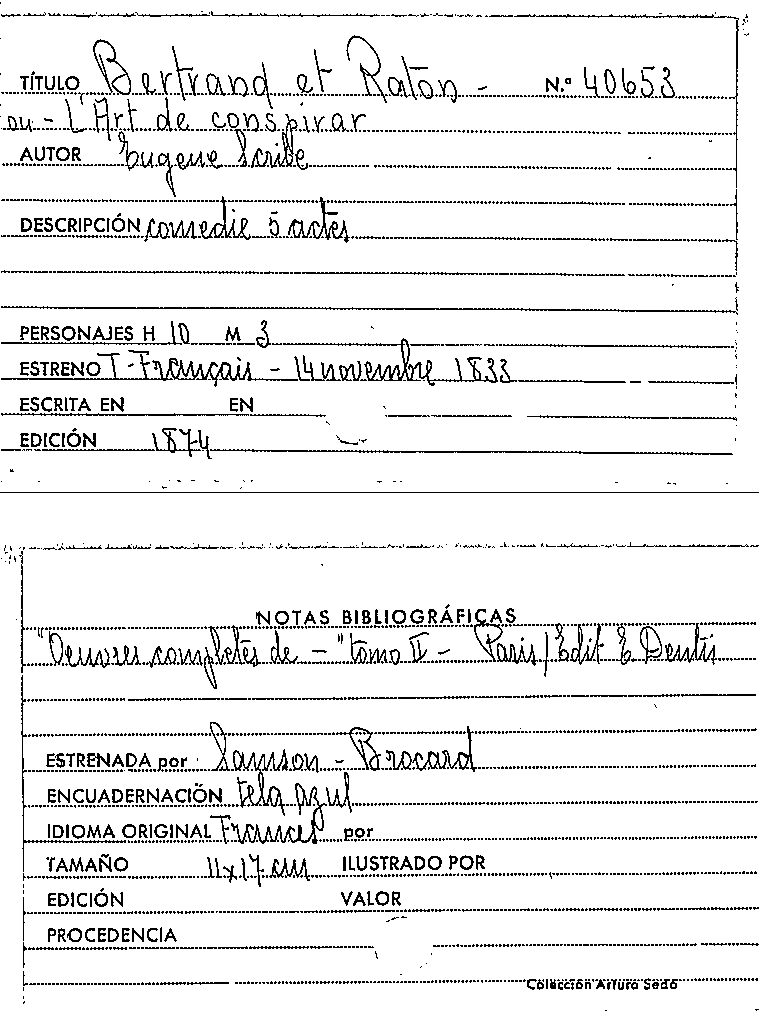 TÍTULO Bertrand et Raton - N.º 40653
ou - L'Art de conspirar
AUTOR Eugene Scribe
DESCRIPCIÓN comedie 5 actes
PERSONAJES H 10 M 3
ESTRENO T-Français - 14 novembre 1833
ESCRITA EN EN
EDICIÓN 1874
NOTAS BIBLIOGRÁFICAS
"Oeuvres completes de - " tomo II - Paris / Edit E Dentis
ESTRENADA por : Samson - Brocard
ENCUADERNACIÓN tela azul
IDIOMA ORIGINAL Frances por
TAMAÑO 11x17 cm ILUSTRADO POR
EDICIÓN VALOR
PROCEDENCIA
Colección Arturo Sedó